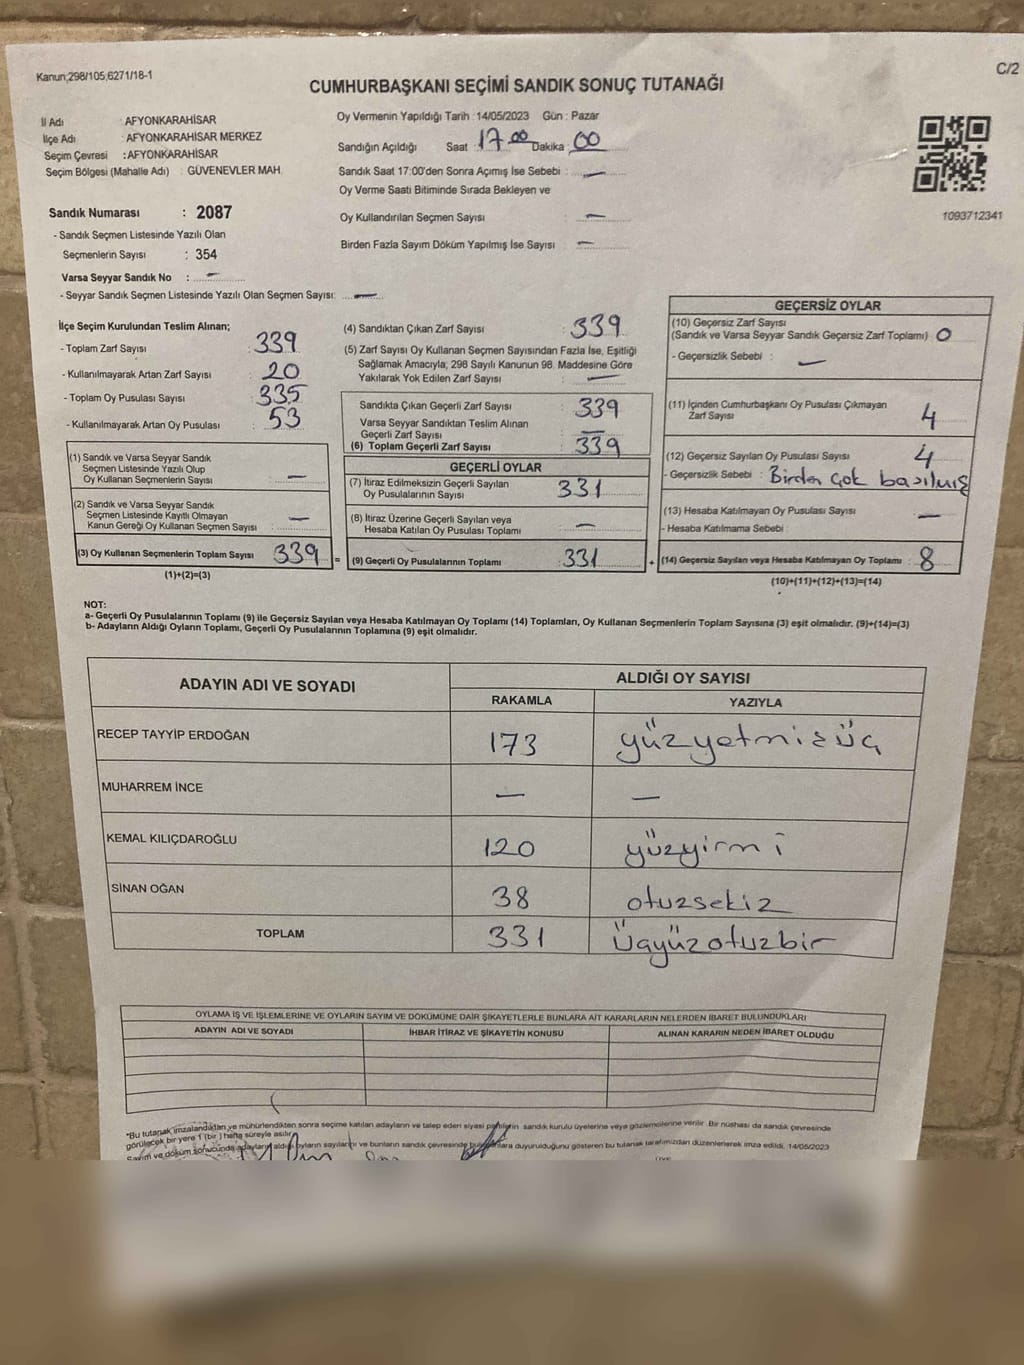 Kanun;298/105,6271/18-1
C/2
CUMHURBAŞKANI SEÇİMİ SANDIK SONUÇ TUTANAĞI
İl Adı : AFYONKARAHİSAR
İlçe Adı : AFYONKARAHİSAR MERKEZ
Seçim Çevresi : AFYONKARAHİSAR
Seçim Bölgesi (Mahalle Adı) : GÜVENEVLER MAH.
Sandık Numarası : 2087
- Sandık Seçmen Listesinde Yazılı Olan
Seçmenlerin Sayısı : 354
Varsa Seyyar Sandık No : —
- Seyyar Sandık Seçmen Listesinde Yazılı Olan Seçmen Sayısı: —
Oy Vermenin Yapıldığı Tarih : 14/05/2023 Gün : Pazar
Sandığın Açıldığı Saat : 17.00 Dakika : 00
Sandık Saat 17:00'den Sonra Açımış İse Sebebi : —
Oy Verme Saati Bitiminde Sırada Bekleyen ve
Oy Kullandırılan Seçmen Sayısı : —
Birden Fazla Sayım Döküm Yapılmış İse Sayısı : —
1093712341
İlçe Seçim Kurulundan Teslim Alınan;
- Toplam Zarf Sayısı : 339
- Kullanılmayarak Artan Zarf Sayısı : 20
- Toplam Oy Pusulası Sayısı : 335
- Kullanılmayarak Artan Oy Pusulası : 53
(1) Sandık ve Varsa Seyyar Sandık
Seçmen Listesinde Yazılı Olup
Oy Kullanan Seçmenlerin Sayısı : —
(2) Sandık ve Varsa Seyyar Sandık
Seçmen Listesinde Kayıtlı Olmayan
Kanun Gereği Oy Kullanan Seçmen Sayısı : —
(3) Oy Kullanan Seçmenlerin Toplam Sayısı : 339 =
(1)+(2)=(3)
(4) Sandıktan Çıkan Zarf Sayısı : 339
(5) Zarf Sayısı Oy Kullanan Seçmen Sayısından Fazla İse, Eşitliği
Sağlamak Amacıyla; 298 Sayılı Kanunun 98. Maddesine Göre
Yakılarak Yok Edilen Zarf Sayısı : —
Sandıkta Çıkan Geçerli Zarf Sayısı : 339
Varsa Seyyar Sandıktan Teslim Alınan
Geçerli Zarf Sayısı : —
(6) Toplam Geçerli Zarf Sayısı : 339
GEÇERLİ OYLAR
(7) İtiraz Edilmeksizin Geçerli Sayılan
Oy Pusulalarının Sayısı : 331
(8) İtiraz Üzerine Geçerli Sayılan veya
Hesaba Katılan Oy Pusulası Toplamı : —
(9) Geçerli Oy Pusulalarının Toplamı : 331 +
GEÇERSİZ OYLAR
(10) Geçersiz Zarf Sayısı
(Sandık ve Varsa Seyyar Sandık Geçersiz Zarf Toplamı) : 0
- Geçersizlik Sebebi : —
(11) İçinden Cumhurbaşkanı Oy Pusulası Çıkmayan
Zarf Sayısı : 4
(12) Geçersiz Sayılan Oy Pusulası Sayısı : 4
- Geçersizlik Sebebi : Birden çok basılmış
(13) Hesaba Katılmayan Oy Pusulası Sayısı : —
- Hesaba Katılmama Sebebi :
(14) Geçersiz Sayılan veya Hesaba Katılmayan Oy Toplamı : 8
(10)+(11)+(12)+(13)=(14)
NOT:
a- Geçerli Oy Pusulalarının Toplamı (9) ile Geçersiz Sayılan veya Hesaba Katılmayan Oy Toplamı (14) Toplamları, Oy Kullanan Seçmenlerin Toplam Sayısına (3) eşit olmalıdır. (9)+(14)=(3)
b- Adayların Aldığı Oyların Toplamı, Geçerli Oy Pusulalarının Toplamına (9) eşit olmalıdır.
ADAYIN ADI VE SOYADI ALDIĞI OY SAYISI
RAKAMLA YAZIYLA
RECEP TAYYİP ERDOĞAN 173 yüzyetmişüç
MUHARREM İNCE — —
KEMAL KILIÇDAROĞLU 120 yüzyirmi
SİNAN OĞAN 38 otuzsekiz
TOPLAM 331 üçyüzotuzbir
OYLAMA İŞ VE İŞLEMLERİNE VE OYLARIN SAYIM VE DÖKÜMÜNE DAİR ŞİKAYETLERLE BUNLARA AİT KARARLARIN NELERDEN İBARET BULUNDUKLARI
ADAYIN ADI VE SOYADI İHBAR İTİRAZ VE ŞİKAYETİN KONUSU ALINAN KARARIN NEDEN İBARET OLDUĞU
*Bu tutanak imzalandıktan ve mühürlendikten sonra seçime katılan adayların ve talep eden siyasi partilerin sandık kurulu üyelerine veya gözlemcilerine verilir. Bir nüshası da sandık çevresinde
görülecek bir yere 1 (bir) hafta süreyle asılır.
Sayım ve döküm sonucunda adayların aldığı oyların sayılarını ve bunların sandık çevresinde duyurulduğunu gösteren bu tutanak tarafımızdan düzenlenerek imza edildi. 14/05/2023